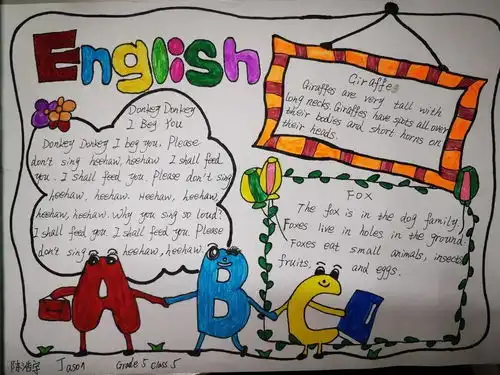 English
Donkey Donkey
I Beg You
Donkey Donkey I beg you. Please
don't sing heehaw, heehaw I shall feed
you. I shall feed you. Please don't sing
heehaw, heehaw. Heehaw, heehaw,
heehaw, heehaw. Why you sing so loud?
I shall feed you. I shall feed you. Please
don't sing heehaw, heehaw.
Giraffe
Giraffes are very tall with
long necks. Giraffes have spots all over
their bodies and short horns on
their heads.
Fox
The fox is in the dog family
Foxes live in holes in the ground.
Foxes eat small animals, insects
fruits, and eggs.
A B C
Jason Grade 5 class 5